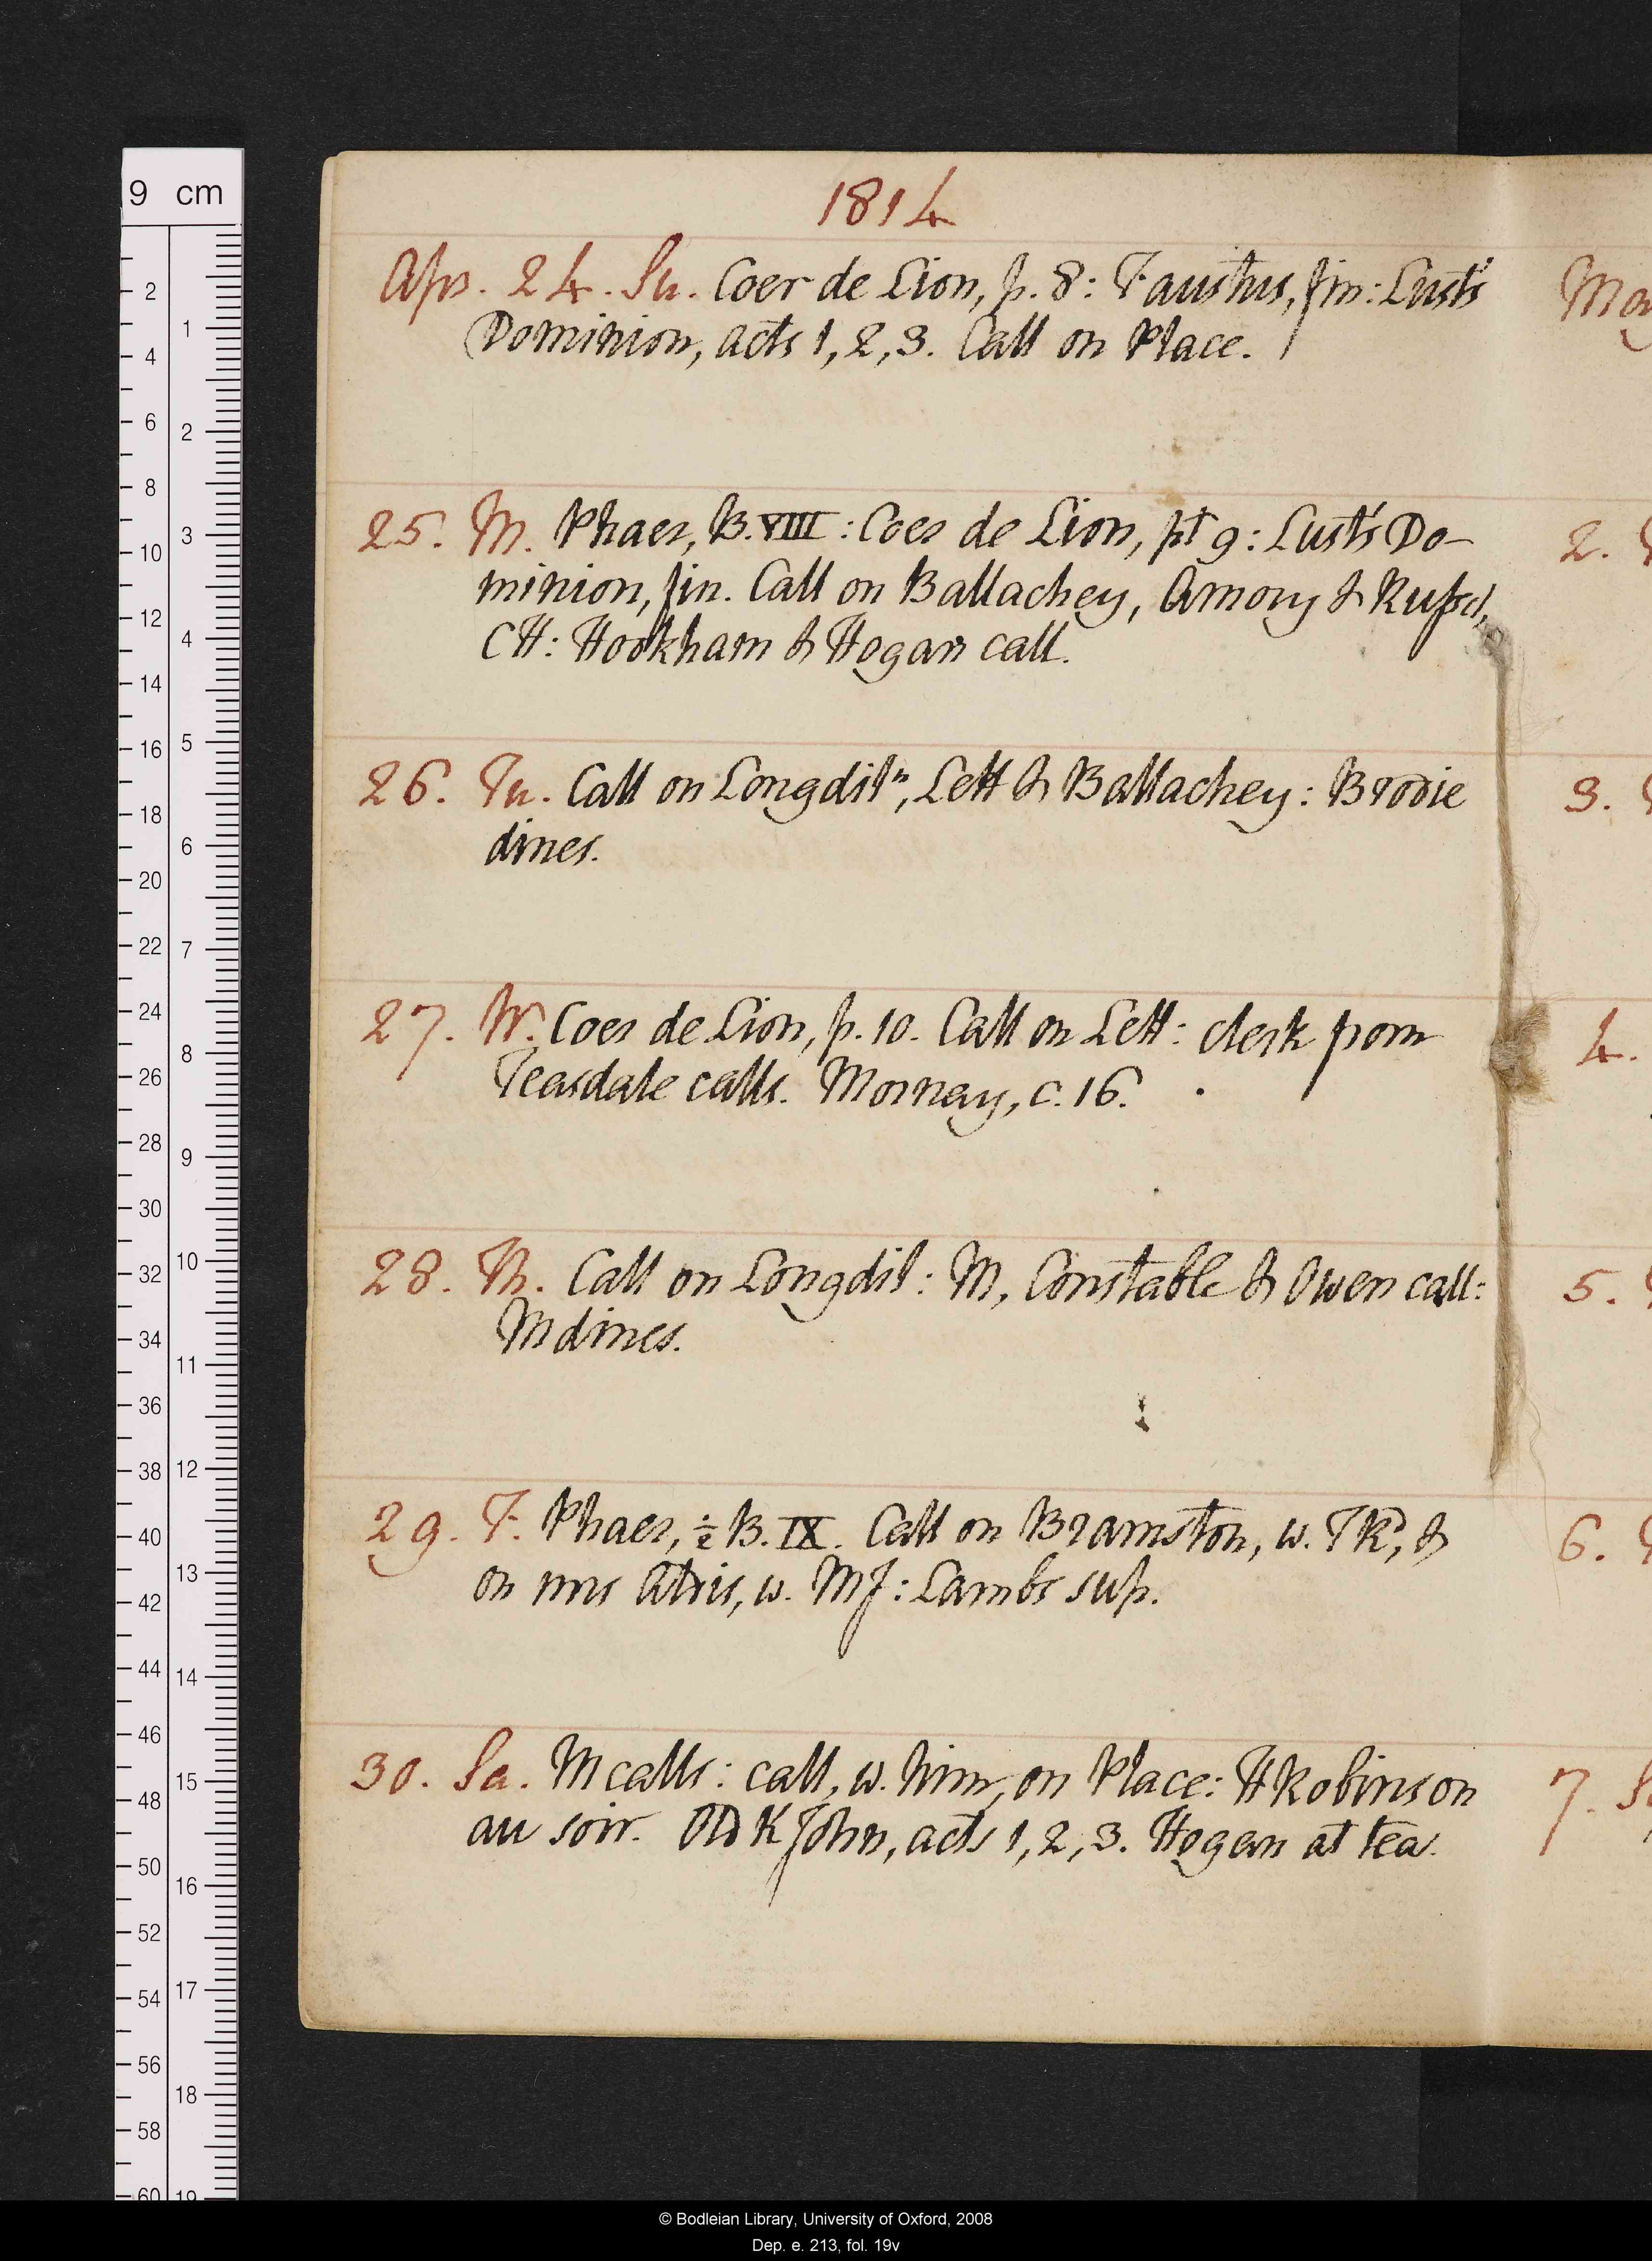 1814
Apr. 24. Su. Coer de Lion, p. 8: Faustus, fin: Lust's
Dominion, acts 1, 2, 3. Call on Place.
25. M. Phaer, B. VIII: Coer de Lion, pt 9: Lust's Do-
minion, fin. Call on Ballachey, Amory &
CH: Hookham & Hogan call.
26. Tu. Call on Longdilⁿ, Lett & Ballachey: Brodie
dines.
27. W. Coer de Lion, p. 10. Call on Lett: clerk from
Teasdale calls. Mornay, c. 16.
28. Th. Call on Longdil: M, Constable & Owen call:
M dines.
29. F. Phaer, ½ B. IX. Call on Bramston, w. TR, &
on mrs Atris, w. MJ: Lambs sup.
30. Sa. M calls: call, w. him, on Place: H Robinson
au soir. Old K John, acts 1, 2, 3. Hogan at tea.
2.
3.
4.
5.
6.
7.
9 cm
2
4
6
8
10
12
14
16
18
20
22
24
26
28
30
32
34
36
38
40
42
44
46
48
50
52
54
56
58
60
1
2
3
4
5
6
7
8
9
10
11
12
13
14
15
16
17
18
19
© Bodleian Library, University of Oxford, 2008
Dep. e. 213, fol. 19v